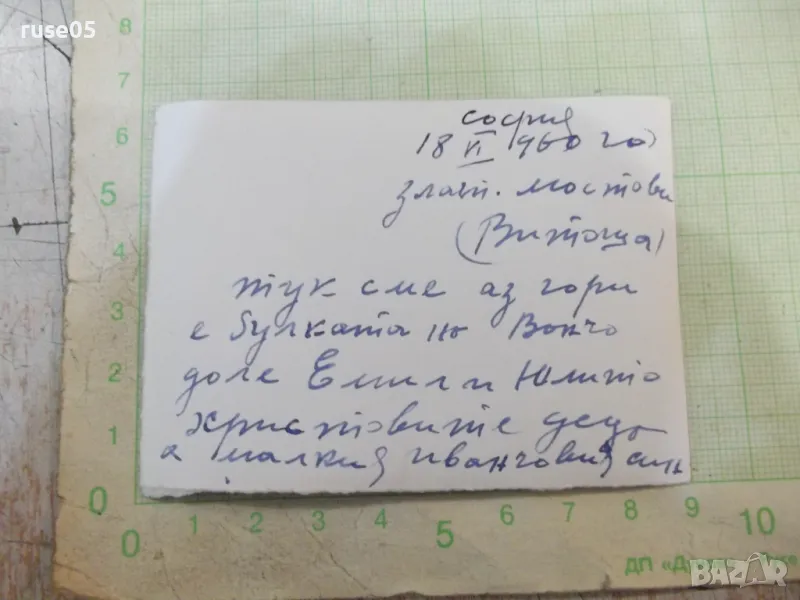 ruse05
София
18 VI 1960 год
злат. мостови
(Витоша)
тук сме аз гори
е булката ю Вончо
доле Емил и Юлито
христовите деца
а малкия иванчовия син
8
7
6
5
4
3
2
1
0
0 1 2 3 4 5 6 7 8 9 10
ДП «Д
BAZAR